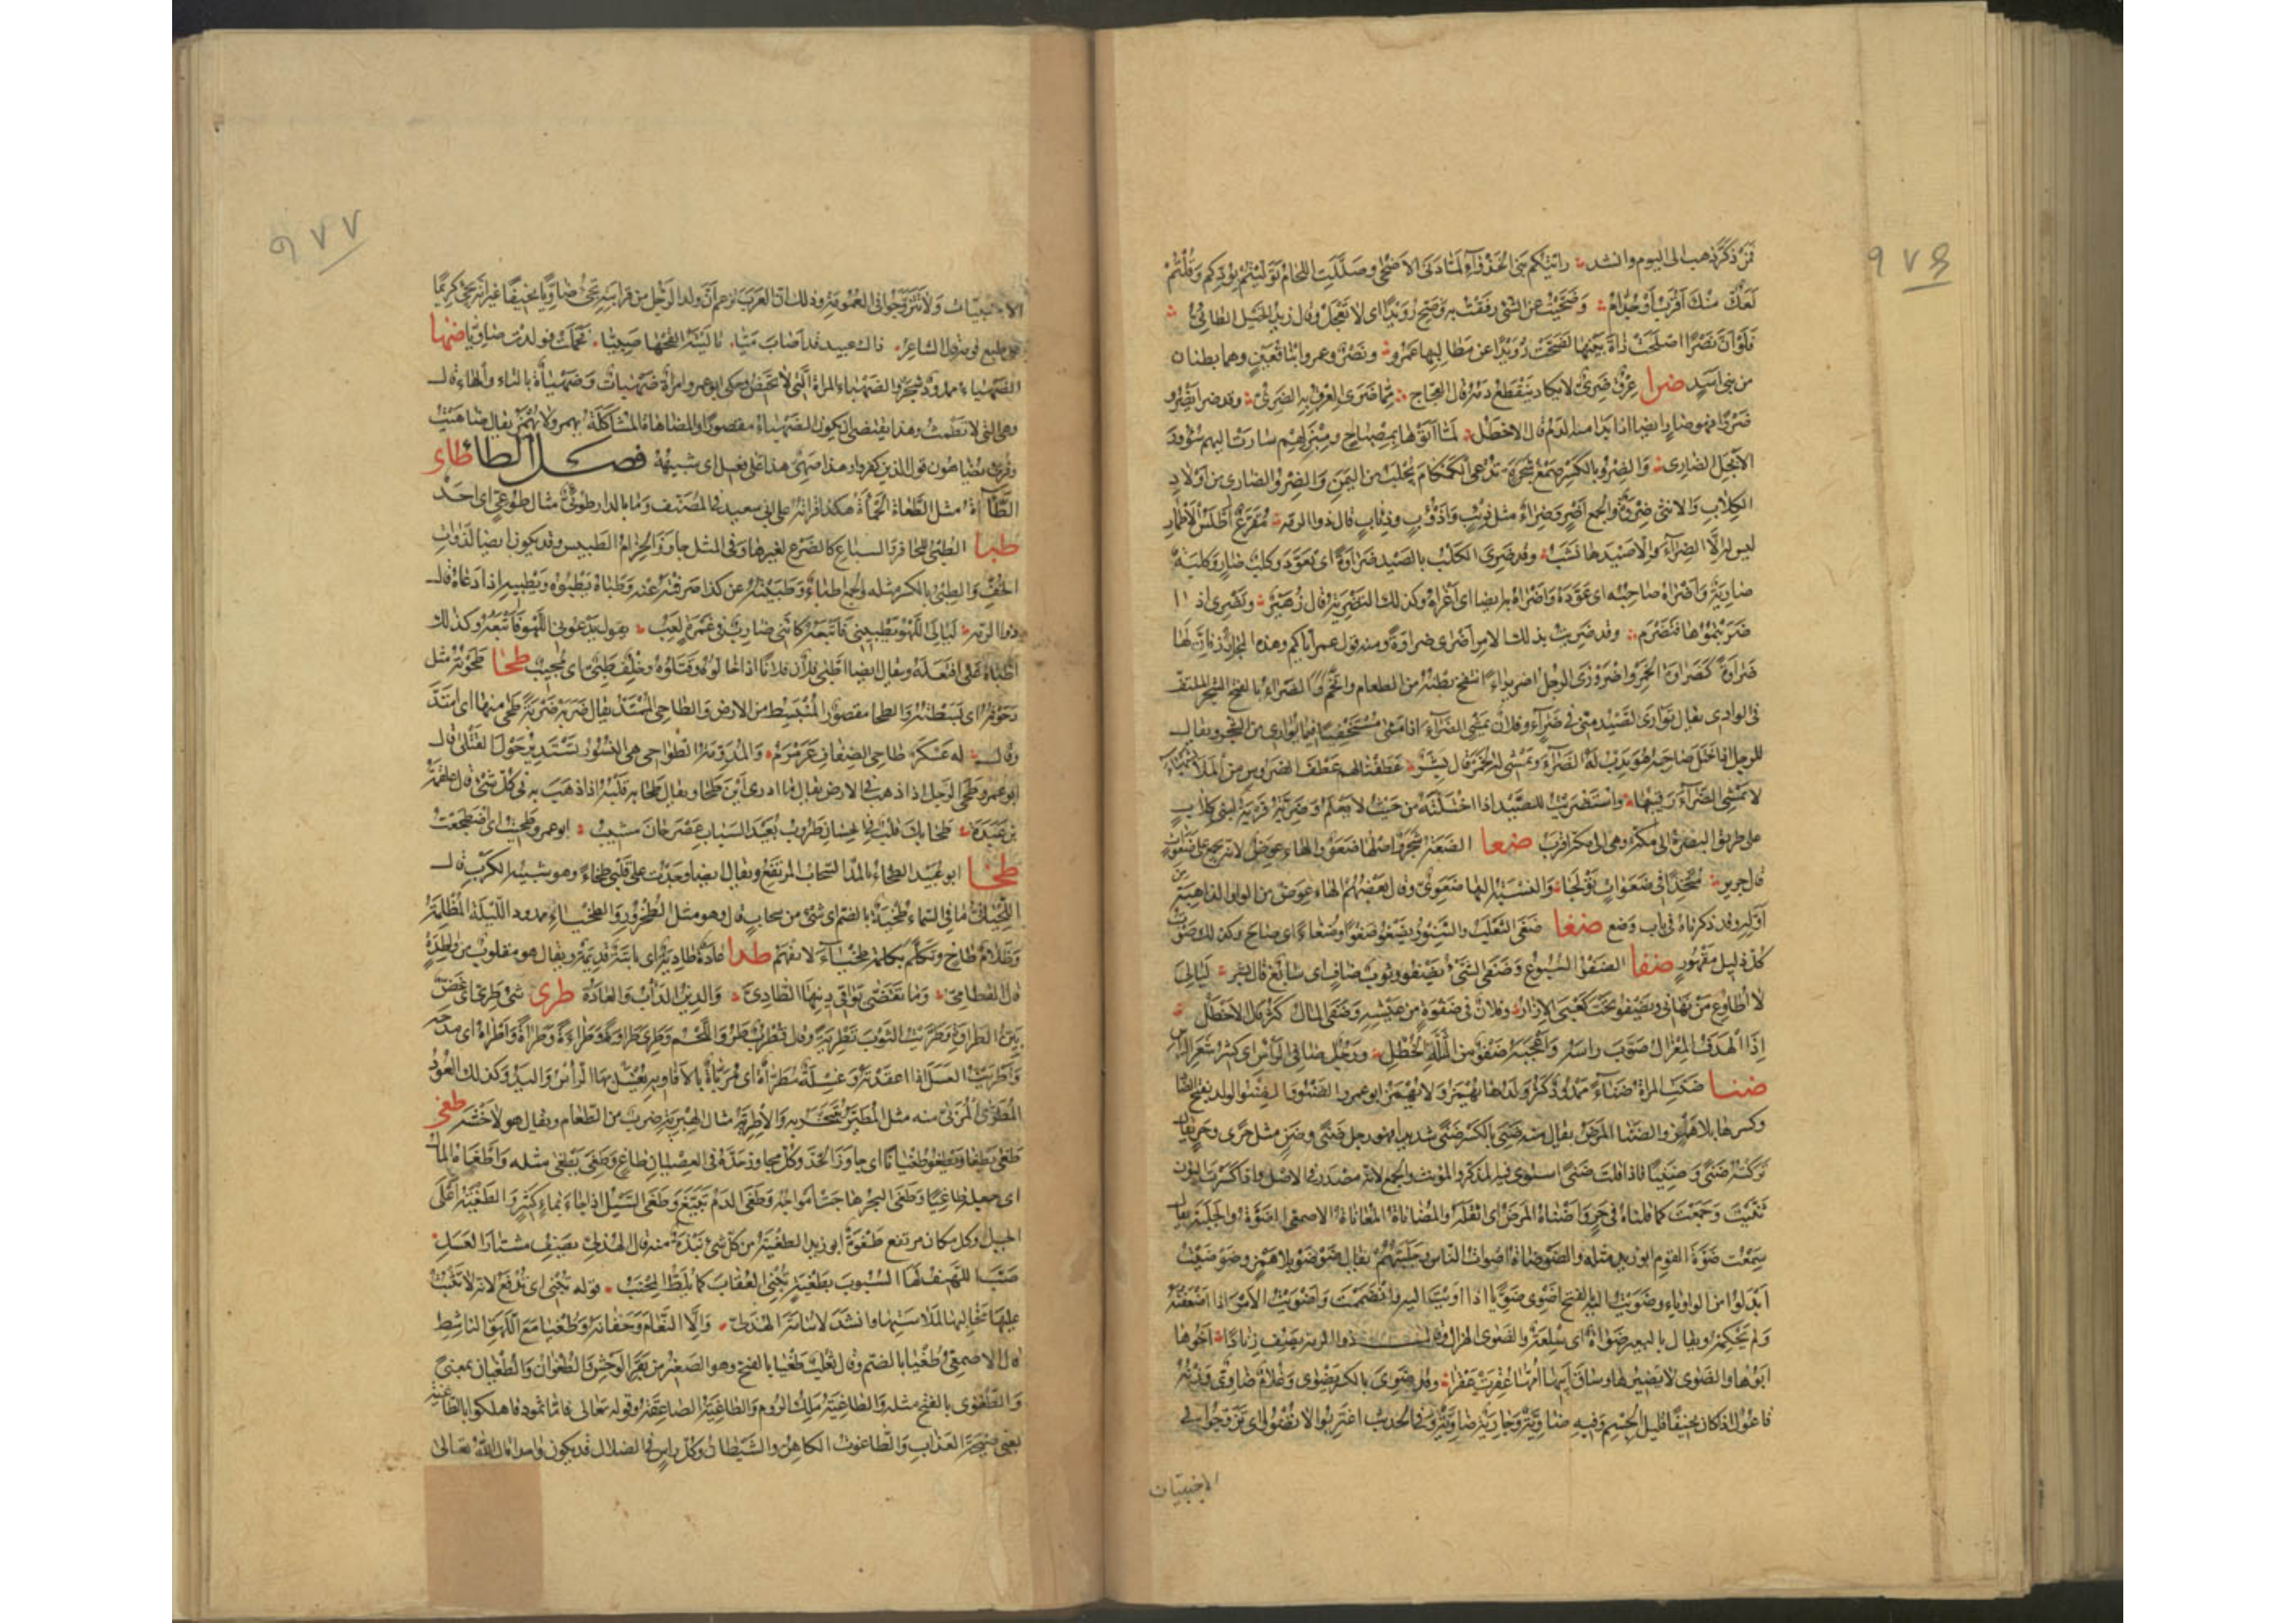 ٩٧٦
فمن ذكّر ذهب الى اليوم وانشد رايتكم بنى الخذواء لما دنى الاضحى وصللت اللحام توليتم بودكم وقلتم
لعك منك اقرب او جذام وضحيت عن الشئ رفقت به وضح رويدا اى لا تعجل وقال زيد الخيل الطائى
فلو ان نصرا اصلحت ذات بينها لضحت رويدا عن مظالمها عمرو ونصر وعمرو ابنا قعين وهما بطنان
من بنى اسد ضرا عرق ضرى لا يكاد ينقطع دمه قال العجاج مما ضرى العرق به الضرى وقد ضرا يضرو
ضروا فهو ضار ايضا اذا بدا منه الدم قال الاخطل لما اتوها بمصباح ومبزلهم سارت اليهم سؤور
الابجل الضارى والضرو بالكسر صمغ شجرة تدعى الكمكام يجلب من اليمن والضرو الضارى من اولاد
الكلاب والانثى ضروة والجمع اضر وضراء مثل ذئب واذؤب وذئاب قال ذو الرمة مقزع اطلس الاطمار
ليس له الا الضراء والا صيدها نشب وقد ضرى الكلب بالصيد ضراوة اى تعود وكلب ضار وكلبة
ضارية واضراه صاحبه اى عوده واضراه به ايضا اى اغراه وكذلك التضرية قال زهير وتضرى اذا
ضريتموها فتضرم وقد ضريت بذلك الامر اضرى ضراوة ومنه قول عمر اياكم وهذه المجازر فان لها
ضراوة كضراوة الخمر واضرورى الرجل اضريراء انتفخ بطنه من الطعام واتخم والضراء بالفتح الشجر الملتف
فى الوادى يقال توارى الصيد منى فى ضراء وفلان يمشى الضراء اذا مشى مستخفيا فيما يوارى من الشجر ويقال
للرجل اذا ختل صاحبه هو يدب له الضراء ويمشى له الخمر قال بشر عطفنا لهم عطف الضروس من الملا بشهباء
لا يمشى الضراء رقيبها واستضريت للصيد اذا اختلته من حيث لا يعلم وضرية قرية لبنى كلاب
على طريق البصرة الى مكة وهى الى مكة اقرب ضعا الضعة شجر واصلها ضعو والهاء عوض لانه يجمع على ضعوات
قال جرير متخذا فى ضعوات تولجا والنسبة اليها ضعوى وقال بعضهم الهاء عوض من الواو الذاهبة من
اوله وقد ذكرناه فى باب وضع ضغا ضغى الثعلب والسنور يضغو ضغوا وضغاء اى صاح وكذلك صوت
كل ذليل مقهور ضفا الضفو السبوغ وضفى الشئ يضفو وثوب ضاف اى سابغ قال بشر ليالى
لا اطاوع من نهانى ويضفو تحت كعبى الازار وفلان فى ضفوة من عيشه وضفى المال كثر قال الاخطل
اذا الهدف المعزال صوب راسه واعجبه ضفو من الثلة الخطل ورجل ضافى الراس اى كثير شعر الراس
ضنا ضنت المراة ضناء ممدود كثر ولدها يهمز ولا يهمز ابو عمرو الضنو والضنو الولد بفتح الضاد
وكسرها بلا همز والضنا المرض يقال منه ضنى بالكسر ضنى شديدا فهو رجل ضنى وضن مثل حرى وحر يقال
تركته ضنى وضنيا فاذا قلت ضنى استوى فيه المذكر والمونث والجمع لانه مصدر فى الاصل واذا كسرت النون
ثنيت وجمعت كما قلناه فى حر واضناه المرض اى اثقله والمضاناة المعاناة الاصمعى الضوة والجلبة يقال
سمعت ضوة القوم ابو زيد مثله والضوضاة اصوات الناس وجلبتهم يقال ضوضو بلا همز وضوضيت
ابدلوا من الواو ياء وضويت اليه بالفتح اضوى ضويا اذا اويت اليه وانضممت واضويت الامر اذا اضعفته
ولم تحكمه ويقال بالبعير ضواة اى سلعة والضوى الهزال وقال ذو الرمة يصف زنادا اخوها
ابوها والضوى لا يضيرها وساق ابيها امها عقرت عقرا وقد ضوى بالكسر يضوى وغلام ضاوى وزنه
فاعول اذا كان نحيفا قليل الجسم وفيه ضاوية وجارية ضاوية وفى الحديث اغتربوا لا تضووا اى تزوجوا فى
الاجنبيات
٩٧٧
الاجنبيات ولا تتزوجوا فى العمومة وذلك ان العرب تزعم ان ولد الرجل من قرابته يجئ ضاويا نحيفا غير انه يجئ كريما
على طبع قومه قال الشاعر ذاك عبيد قد اصاب ميا يا ليته القحها صبيا فحملت فولدت ضاويا ضها
الضهياء ممدود شجر والضهياء المراة التى لا تحيض وحكى ابو عمرو امراة ضهياة وضهياة بالتاء والهاء قال
وهى التى لا تطمث وهذا يقتضى ان يكون الضهياء مقصورا والمضاهاة المشاكلة يهمز ولا يهمز يقال ضاهيت
وقرئ يضاهون قول الذين كفروا وهذا ضهى هذا على فعيل اى شبيهه فصل الطاء طاء
الطاءة مثل الطعاة الحماة هكذا قراته على ابى سعيد فى المصنف وما بالدار طوئى مثال طوعى اى احد
طبا الطبى للحافر والسباع كالضرع لغيرها وفى المثل جاوز الحزام الطبيين وقد يكون ايضا لذوات
الخف والطبى بالكسر مثله والجمع اطباء وطبيته عن كذا صرفته عنه وطباه يطبوه ويطبيه اذا دعاه قال
ذو الرمة ليالى اللهو يطبينى فاتبعه كاننى ضارب فى غمرة لعب يقول يدعونى اللهو فاتبعه وكذلك
اطباه على افتعله ويقال ايضا اطبى فلان فلانا اذا خالوه وقتلوه وخلف طبى اى مجيب طحا طحوته مثل
دحوته اى بسطته والطحا مقصور المنبسط من الارض والطاحى الممتد يقال ضربه ضربة طحى منها اى امتد
وقال له عسكر طاحى الضفاف عرمرم والمدومة الطواحى هى النسور تستدير حول القتلى قال
ابو عمرو طحى الرجل اذا ذهب فى الارض يقال ما ادرى اين طحا ويقال طحا به قلبه اذا ذهب به فى كل شئ قال علقمة
بن عبدة طحا بك قلب فى الحسان طروب بعيد الشباب عصر حان مشيب ابو عمرو طحيت اى اضطجعت
طخا ابو عبيد الطخاء بالمد السحاب المرتفع ويقال ايضا وجدت على قلبى طخاء وهو شبيه الكرب قال
اللحيانى ما فى السماء طخية بالضم اى شئ من سحاب قال وهو مثل الطخرور والطخياء ممدود الليلة المظلمة
وظلام طاخ وتكلم بكلمة طخياء لا تفهم طدا عادة طادية اى ثابتة قديمة ويقال هو مقلوب من واطدة
قال القطامى وما تقضى بواقى دينها الطادى والدين الداب والعادة طرى شئ طرى اى غض
بين الطراوة وطريت الثوب تطرية وقال قطرب طرو اللحم وطرى طراوة وطراءة وطراة واطراه اى مدحه
واطريت العسل اذا اعقدته وغسلة مطراة اى مرباة بالافاويه يغسل بها الراس واليد وكذلك العود
المطرى المربى منه مثل المطير يتبخر به والاطرية مثال الهبرية ضرب من الطعام ويقال هو لاخشة طغى
طغى يطغا ويطغو طغيانا اى جاوز الحد وكل مجاوز حده فى العصيان طاغ وطغى يطغى مثله واطغاه المال
اى جعله طاغيا وطغى البحر هاجت امواجه وطغى الدم تبيغ وطغى السيل اذا جاء بماء كثير والطغية اعلى
الجبل وكل مكان مرتفع طغوة ابو زيد الطغية من كل شئ نبذة منه قال الهذلى يصف مشتار العسل
صب اللهيف لها السبوب بطغية تنبى العقاب كما يلط المجنب قوله تنبى اى تدفع لانه لا تثبت
عليها مخالبها لملاستها وانشد لاسامة الهذلى والا النعام وحفانه وطغيا مع اللهق الناشط
قال الاصمعى طغيا بالضم وقال ثعلب طغيا بالفتح وهو الصغير من بقر الوحش والطغوان والطغيان بمعنى
والطغوى بالفتح مثله والطاغية ملك الروم والطاغية الصاعقة وقوله تعالى فاما ثمود فاهلكوا بالطاغية
يعنى صيحة العذاب والطاغوت الكاهن والشيطان وكل راس فى الضلال قد يكون واحدا قال الله تعالى